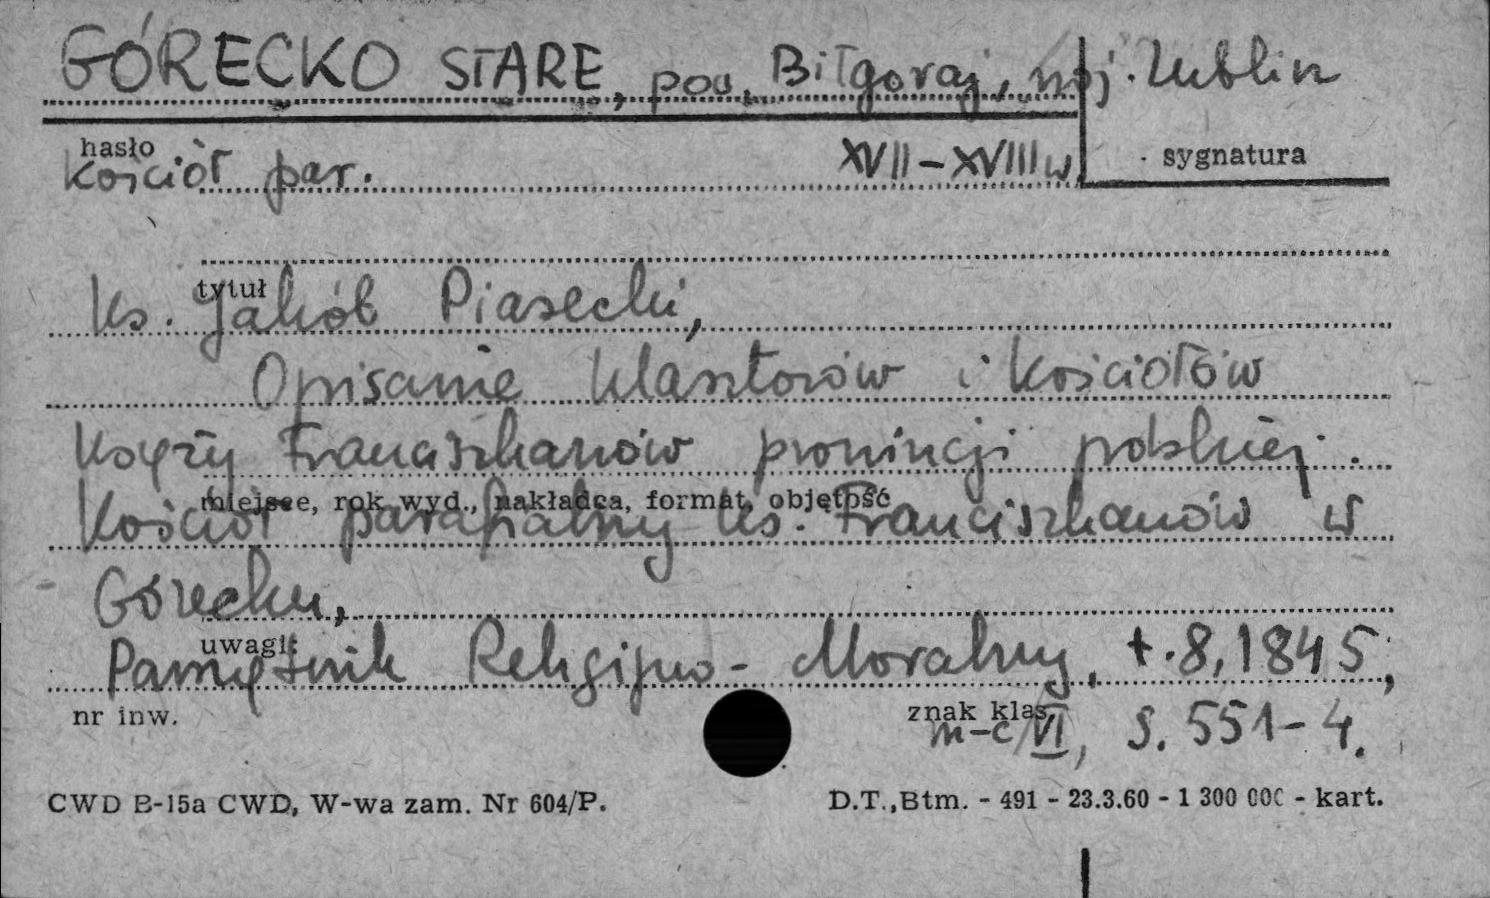 GÓRECKO STARE, pow. Biłgoraj, woj. Lublin
hasło
sygnatura
Kościół par. XVII-XVIII w.
tytuł
Ks. Jakób Piasecki,
Opisanie klasztorów i kościołów
Księży Franciszkanów prowincji polskiej.
miejsce, rok wyd., nakładca, format, objętość
Kościół parafialny ks. Franciszkanów w
Górecku,
uwagi:
Pamiętnik Religijno-Moralny, t.8, 1845,
nr inw.
znak klas.
m-c VI, s. 551-4.
CWD B-15a CWD, W-wa zam. Nr 604/P.
D.T.,Btm. - 491 - 23.3.60 - 1 300 000 - kart.